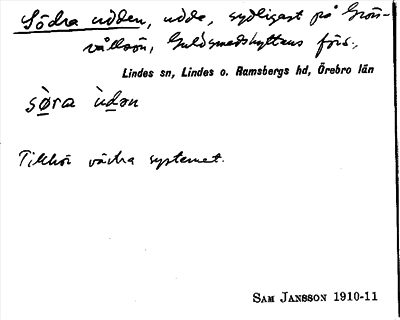 Södra udden, udde, sydligast på Grön-
vållsön, Guldsmedshyttans förs.,
Lindes sn, Lindes o. Ramsbergs hd, Örebro län
sø̱ra ùda̱n
Tillhör västra systemet.
SAM JANSSON 1910-11